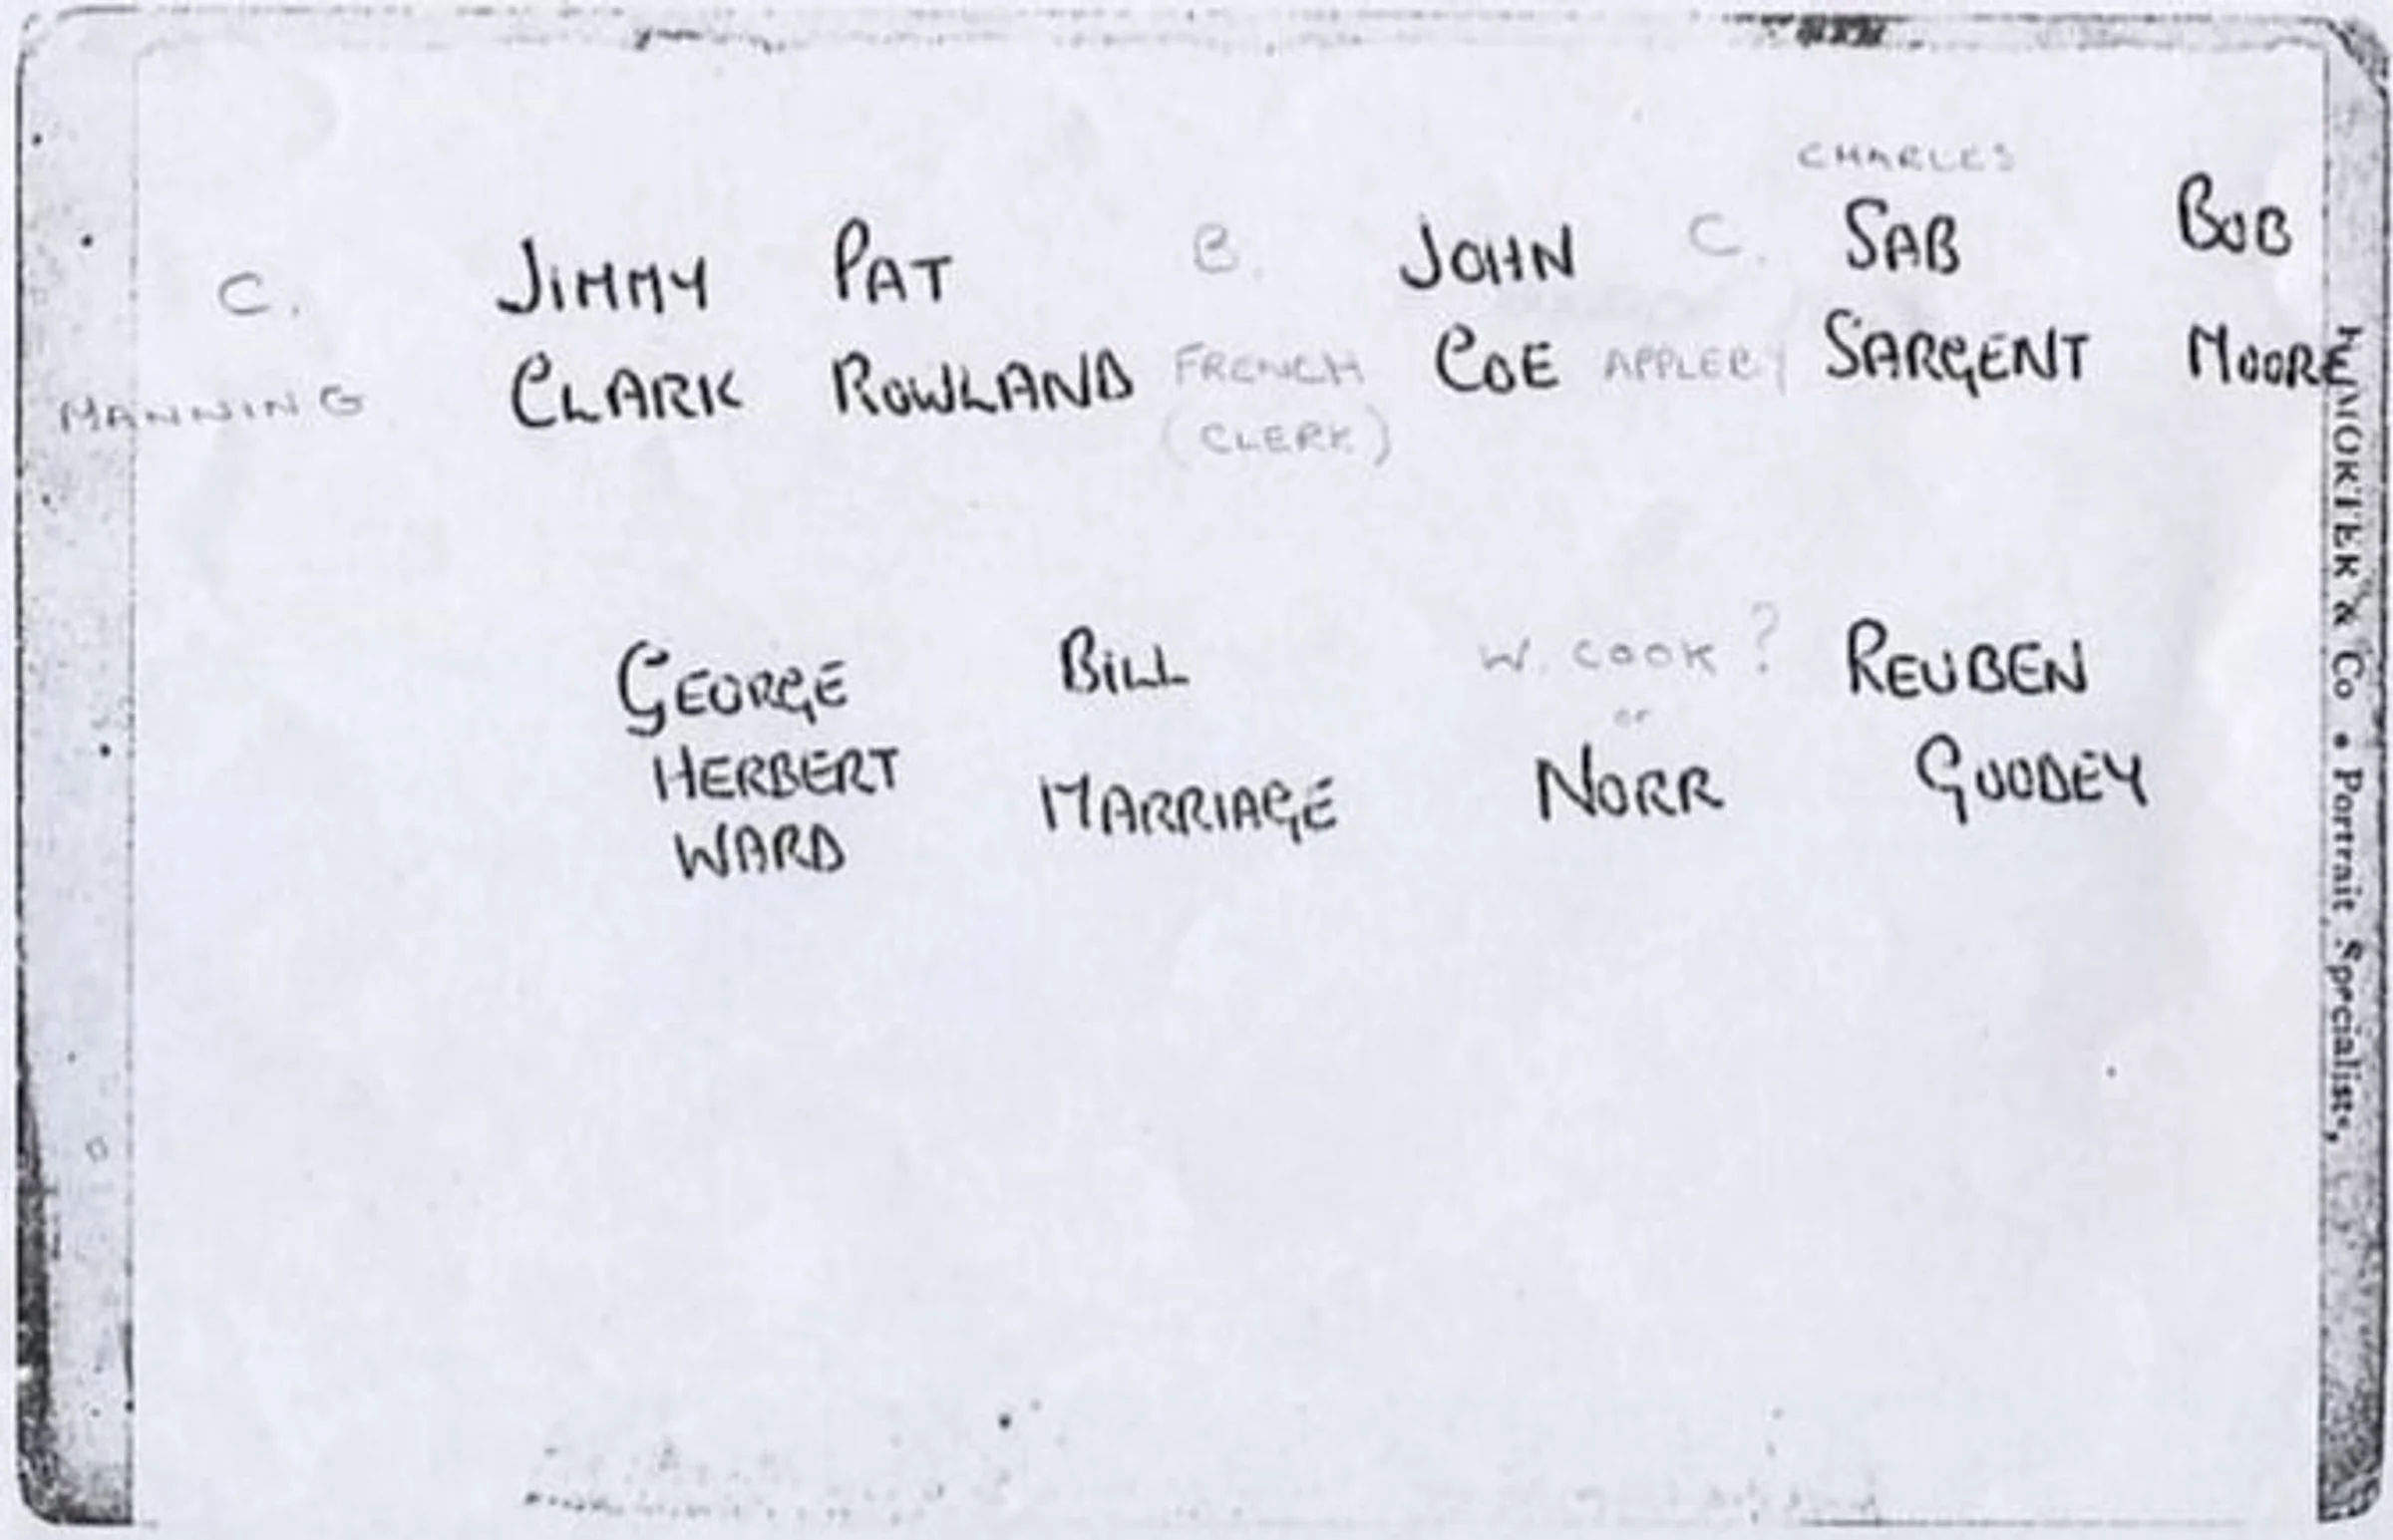 CHARLES
C. JIMMY PAT B. JOHN C. SAB BOB
MANNING CLARK ROWLAND FRENCH COE APPLEBY SARGENT MOORE
(CLERK)
GEORGE BILL W. COOK ? REUBEN
or
HERBERT MARRIAGE NORR GOODEY
WARD
& Co • Portrait Specialists,